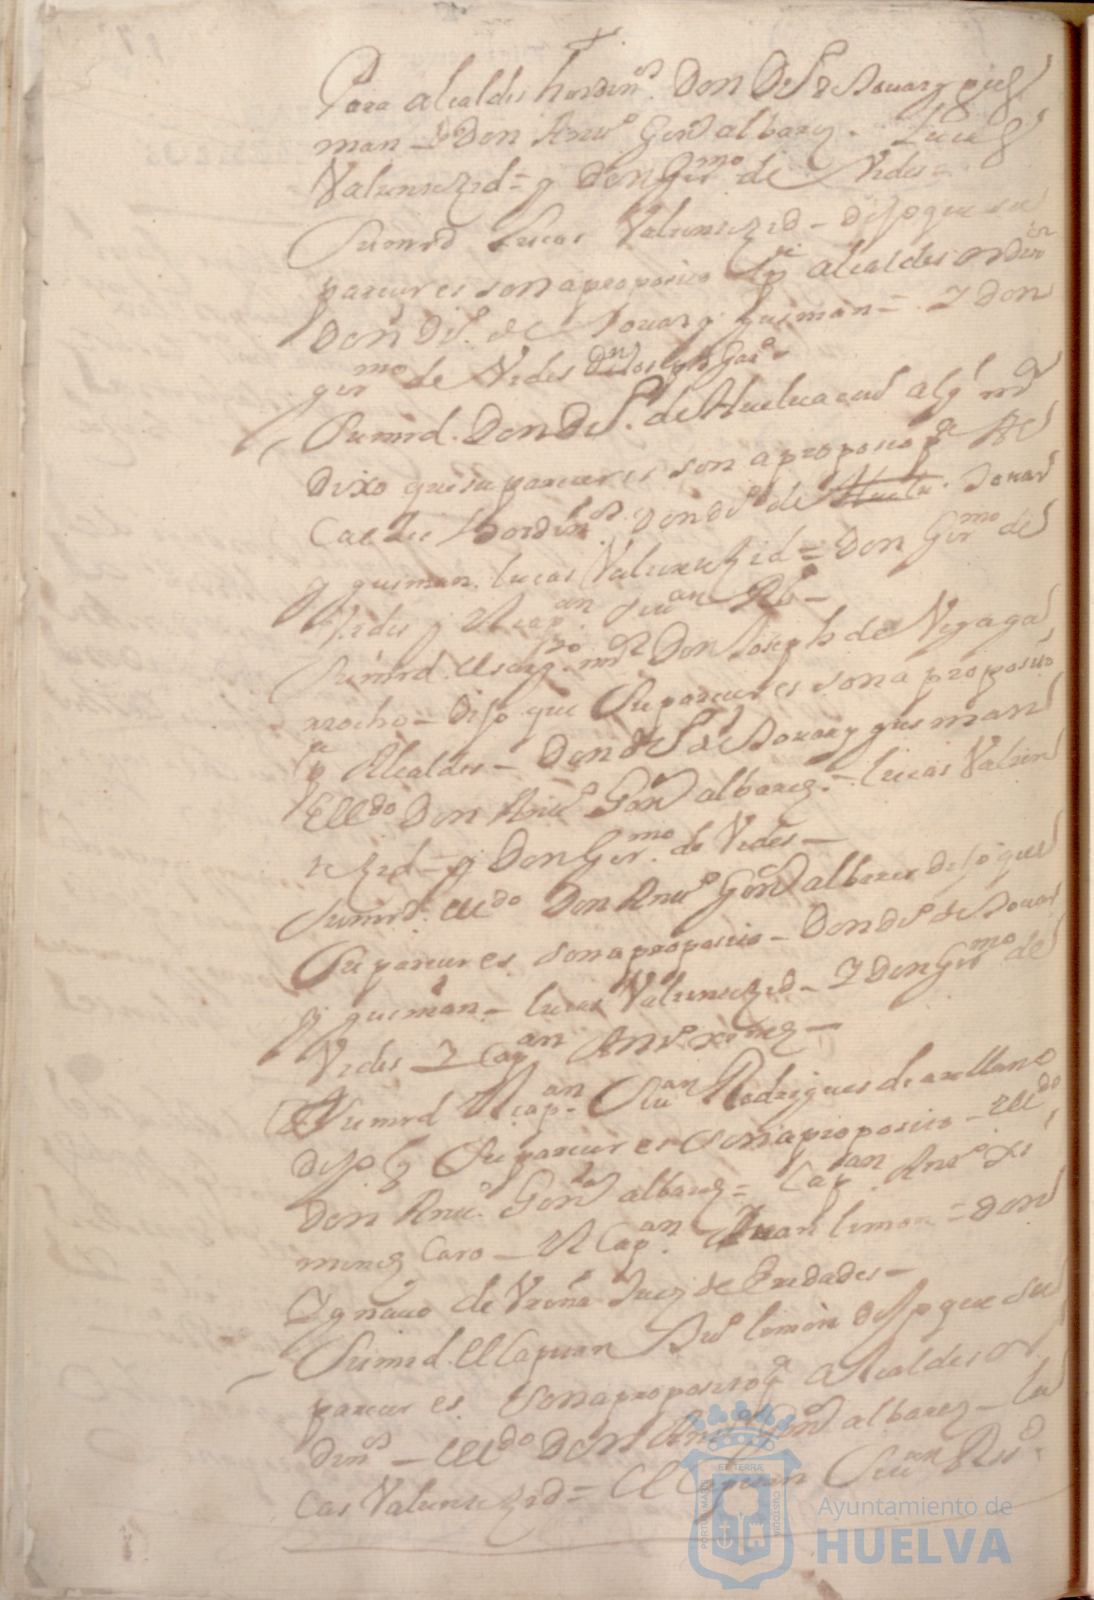 Para alcaldes hordin^os Don D^o de Touar y gus
man – Don Ant^o Gon^s albarez. Lucas
Valençuezid = y Don Ger^mo de Vides =
Sumrd Lucas Valençuezid – dijo que su
pareçer es son aproposito p^a alcaldes ordin^os
Don D^o. de Touar y gusman = y Don
ger^mo de Vides
Sumrd. Don D^o. de Huelua alg^l m^or
Dixo que su pareçer es son aproposito p^a Al
Caldes hordin^os Don D^o de Touar
y gusman. Lucas Valençuezid = Don Ger^mo de
Vides y el cap^an Juan
Sumrd. el sarg^to m^or Don Joseph de Vega ga
rrocho – Dijo que Su pareçer es son a proposito
p^a Alcaldes – Don D^o de Touar y gusman
El l^do Don Ant^o Gon^s albarez = Lucas Valen
zid = y Don Ger^mo. de Vides –
Sumrd. el l^do Don Ant^o Gon^s albarez dijo que
Su pareçer es. son aproposito – Don D^o de Touar
y gusman – Lucas Valençuezid – y Don Ger^mo de
Vides – y Cap^an Ant^o ximenez –
Sumrd el cap^an Ju^an Rodrigues de arellano
dijo q Su pareçer es son aproposito – el l^do
Don Ant^o. Gon^s albarez = Cap^an Ant^o Xi
menez Caro – el Cap^an. Juan limon = don
Ygnacio de Vreña Juez de Erdades –
Sumrd. el Capitan Ant^o limon dijo que su
pareçer es. son aproposito p^a Alcaldes or
din^os – el l^do Don Ant^o Gon^s albarez – Lu
cas Valençuezid = el Capitan Ju^an
Ayuntamiento de
HUELVA